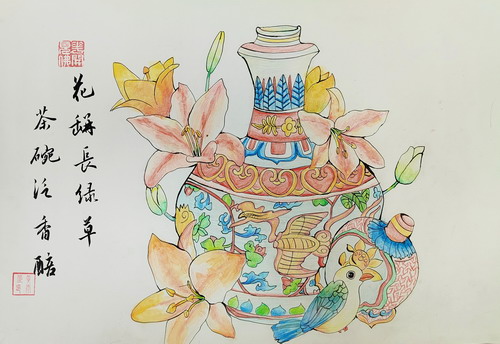 花缾長绿草
茶碗泛香醅